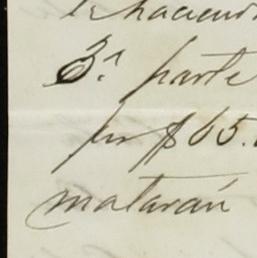 haciend
3ª parte
por $65.
matarán